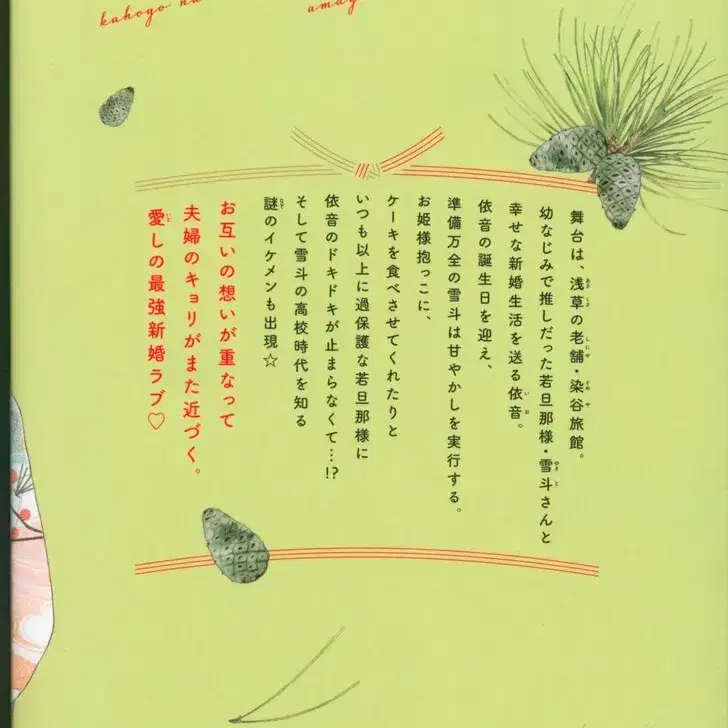 kahogo
舞台は、浅草の老舗・染谷旅館。
幼なじみで推しだった若旦那様・雪斗さんと
幸せな新婚生活を送る依音。
依音の誕生日を迎え、
準備万全の雪斗は甘やかしを実行する。
お姫様抱っこに、
ケーキを食べさせてくれたりと
いつも以上に過保護な若旦那様に
依音のドキドキが止まらなくて…!?
そして雪斗の高校時代を知る
謎のイケメンも出現☆
お互いの想いが重なって
夫婦のキョリがまた近づく。
愛しの最強新婚ラブ♡